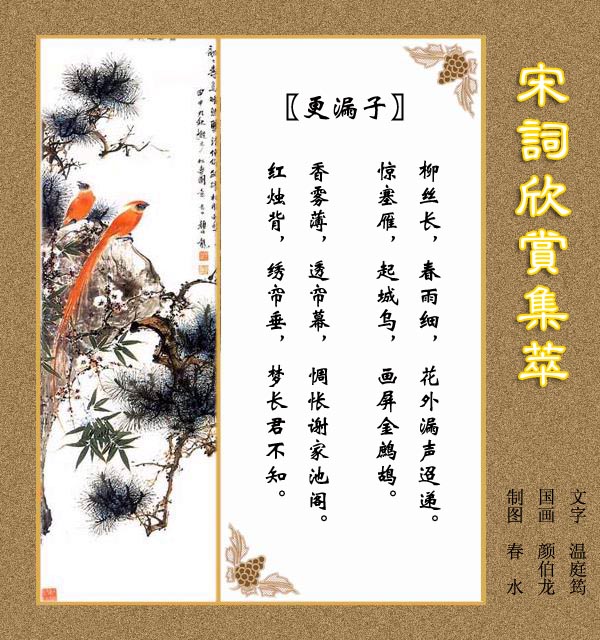 宋詞欣賞集萃
〖更漏子〗
柳丝长，春雨细，花外漏声迢递。
惊塞雁，起城乌，画屏金鹧鸪。
香雾薄，透帘幕，惆怅谢家池阁。
红烛背，绣帘垂，梦长君不知。
文字 温庭筠
国画 颜伯龙
制图 春水